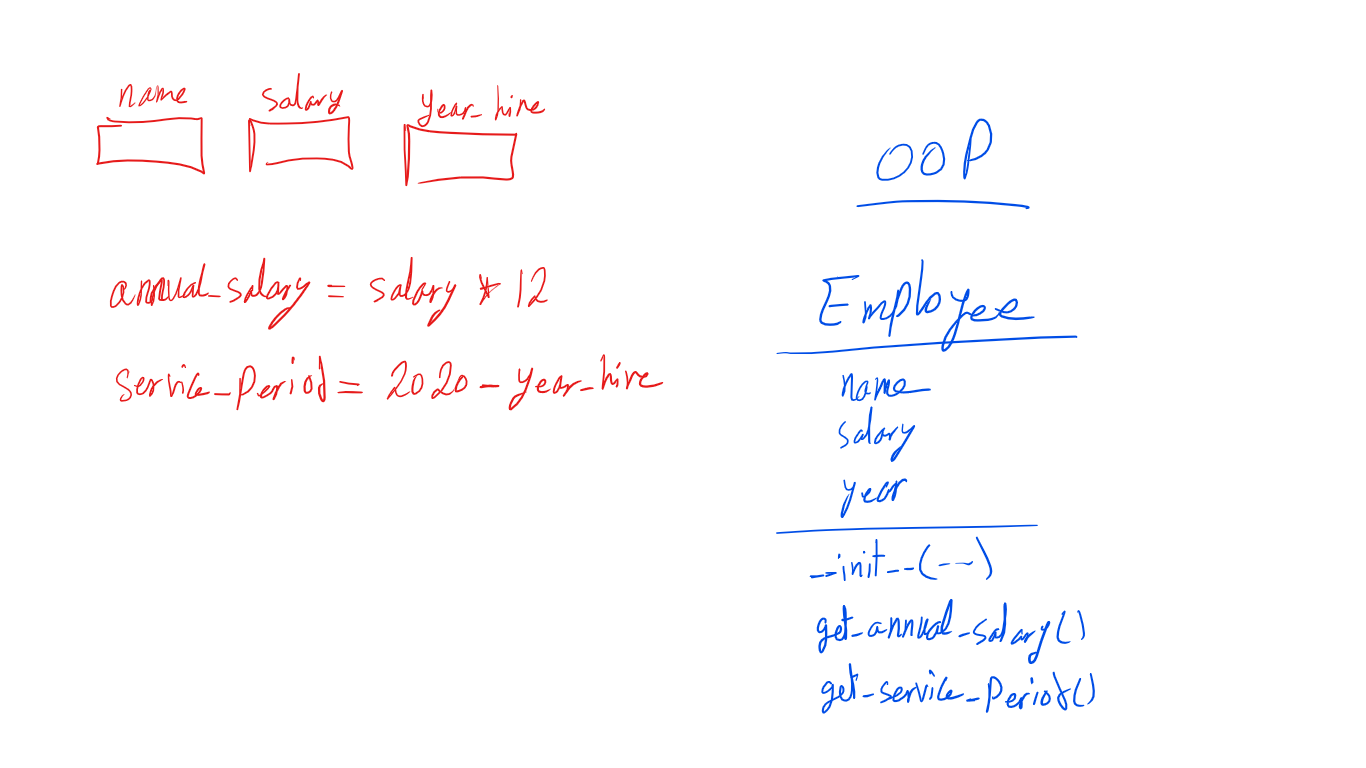 name salary year_hire
annual_salary = salary * 12
service_period = 2020 - year_hire
OOP
Employee
name
salary
year
__init__(---)
get_annual_salary()
get_service_period()